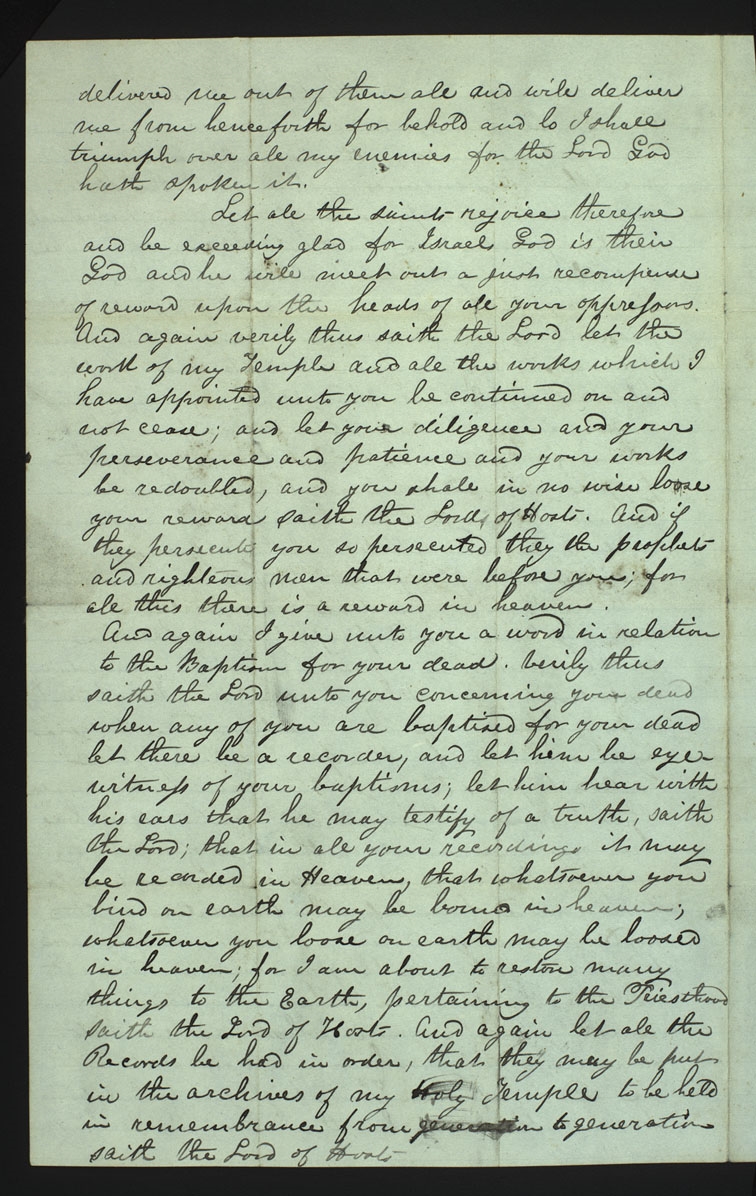 delivered me out of them all and will deliver
me from henceforth for behold and lo I shall
triumph over all my enemies for the Lord God
hath spoken it.
Let all the saints rejoice therefore
and be exceeding glad for Israels God is their
God and he will meet out a just recompense
of reward upon the heads of all your oppressors.
And again verily thus saith the Lord let the
work of my Temple and all the works which I
have appointed unto you be continued on and
not cease; and let your diligence and your
perseverance and patience and your works
be redoubled, and you shall in no wise loose
your reward saith the Lord of Hosts. And if
they persecute you so persecuted they the prophets
and righteous men that were before you; for
all this there is a reward in heaven.
And again I give unto you a word in relation
to the Baptism for your dead. Verily thus
saith the Lord unto you concerning your dead
when any of you are baptised for your dead
let there be a recorder, and let him be eye-
witness of your baptisms; let him hear with
his ears that he may testify of a truth, saith
the Lord; that in all your recordings it may
be recorded in Heaven, that whatsoever you
bind on earth may be bound in heaven;
whatsoever you loose on earth may be loosed
in heaven; for I am about to restore many
things to the Earth, pertaining to the Priesthood
saith the Lord of Hosts. And again let all the
Records be had in order, that they may be put
in the archives of my Holy Temple to be held
in remembrance from generation to generation
saith the Lord of Hosts